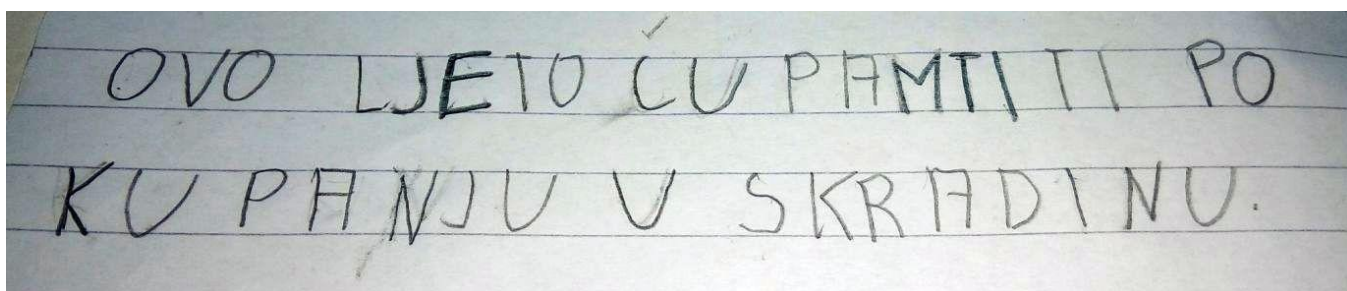 OVO LJETO ĆU PAMTITI PO
KUPANJU U SKRADINU.